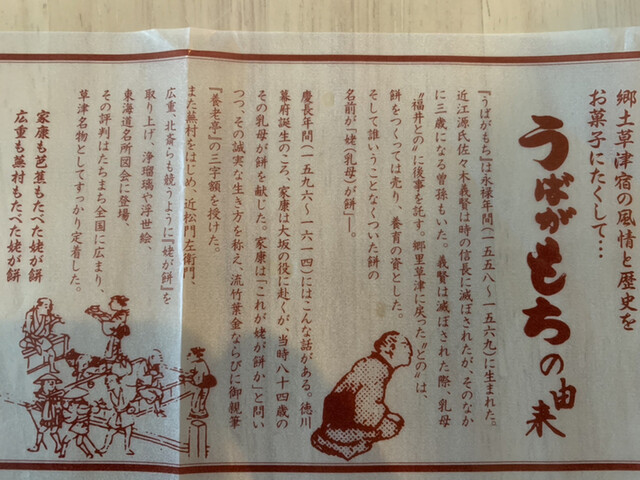 郷土草津宿の風情と歴史を
お菓子にたくして…
うばがもちの由来
『うばがもち』は永禄年間（一五五八～一五六九）に生まれた。
近江源氏佐々木義賢は時の信長に滅ぼされたが、そのなか
に三歳になる曽孫もいた。義賢は滅ぼされた際、乳母
〝福井との〟に後事を託す。郷里草津に戻った〝との〟は、
餅をつくっては売り、養育の資とした。
そして誰いうことなくついた餅の
名前が「姥（乳母）が餅」―。
慶長年間（一五九六～一六一四）にはこんな話がある。徳川
幕府誕生のころ、家康は大坂の役に赴くが、当時八十四歳の
その乳母が餅を献じた。家康は「これが姥が餅か」と問い
つつ、その誠実な生き方を称え、流竹葉金ならびに御親筆
『養老亭』の三字額を授けた。
また蕪村をはじめ、近松門左衛門、
広重、北斎らも競うように『姥が餅』を
取り上げ、浄瑠璃や浮世絵、
東海道名所図会に登場、
その評判はたちまち全国に広まり、
草津名物としてすっかり定着した。
家康も芭蕉もたべた姥が餅
広重も蕪村もたべた姥が餅